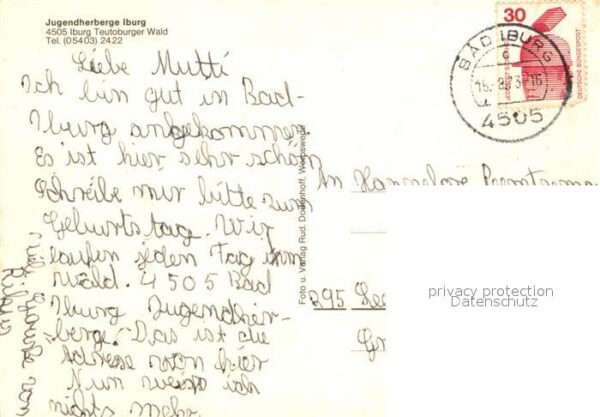 Jugendherberge Iburg
4505 Iburg Teutoburger Wald
Tel. (05403) 2422
Liebe Mutti
Ich bin gut in Bad-
Iburg angekommen.
Es ist hier sehr schön
Schreibe mir bitte zum
Geburtstag. Wir
laufen jeden Tag im
Wald. 4505 Bad
Iburg Jugendher-
berge. Das ist die
Adrese von hier
Nun weis ich
nichts mehr.
viele Grüße von
Foto u. Verlag Rud. Dodenhoff, Worpswede
30
DEUTSCHE BUNDESPOST
BAD IBURG
4505
An Hannelore
295 Lee
privacy protection
Datenschutz